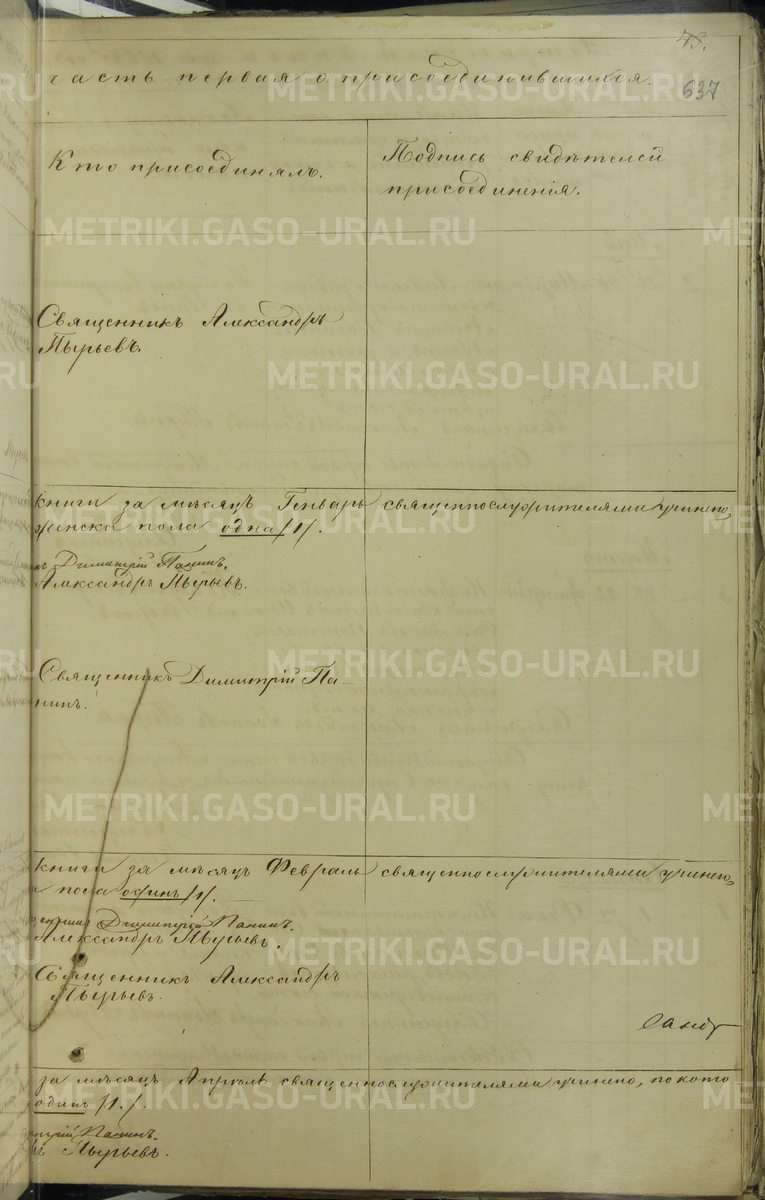 48.
часть первая о присоединившихся.
637
Кто присоединялъ.
Подпись свидѣтелей
присоединенія.
Священникъ Александръ
Пырьевъ.
книги за мѣсяцъ Генварь священнослужителями учинено,
женска пола одна /1/.
Димитрій Панинъ.
Александръ Пырьевъ.
Священникъ Димитрій Па
нинъ.
книги за мѣсяцъ Февраль священнослужителями учинено,
пола одинъ /1/.
Димитрій Панинъ.
Александръ Пырьевъ.
Священникъ Александръ
Пырьевъ.
за мѣсяцъ Апрѣль священнослужителями учинено, по кото
одинъ /1./.
Панинъ.
ъ Пырьевъ.
METRIKI.GASO-URAL.RU